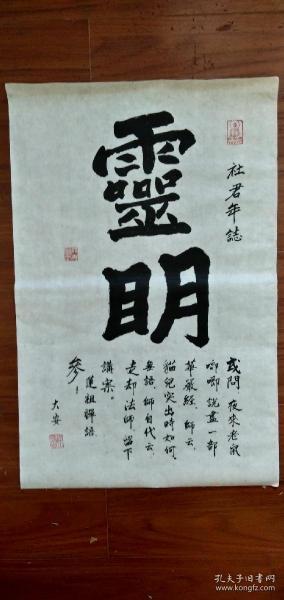 靈明
社君年誌
或問 夜來老鼠
唧唧說盡一部
華嚴經 師云
貓兒突出時如何
無語 師自代云
走却法師 留下
講案。
蓮祖禪語
參！
大安
孔夫子旧书网